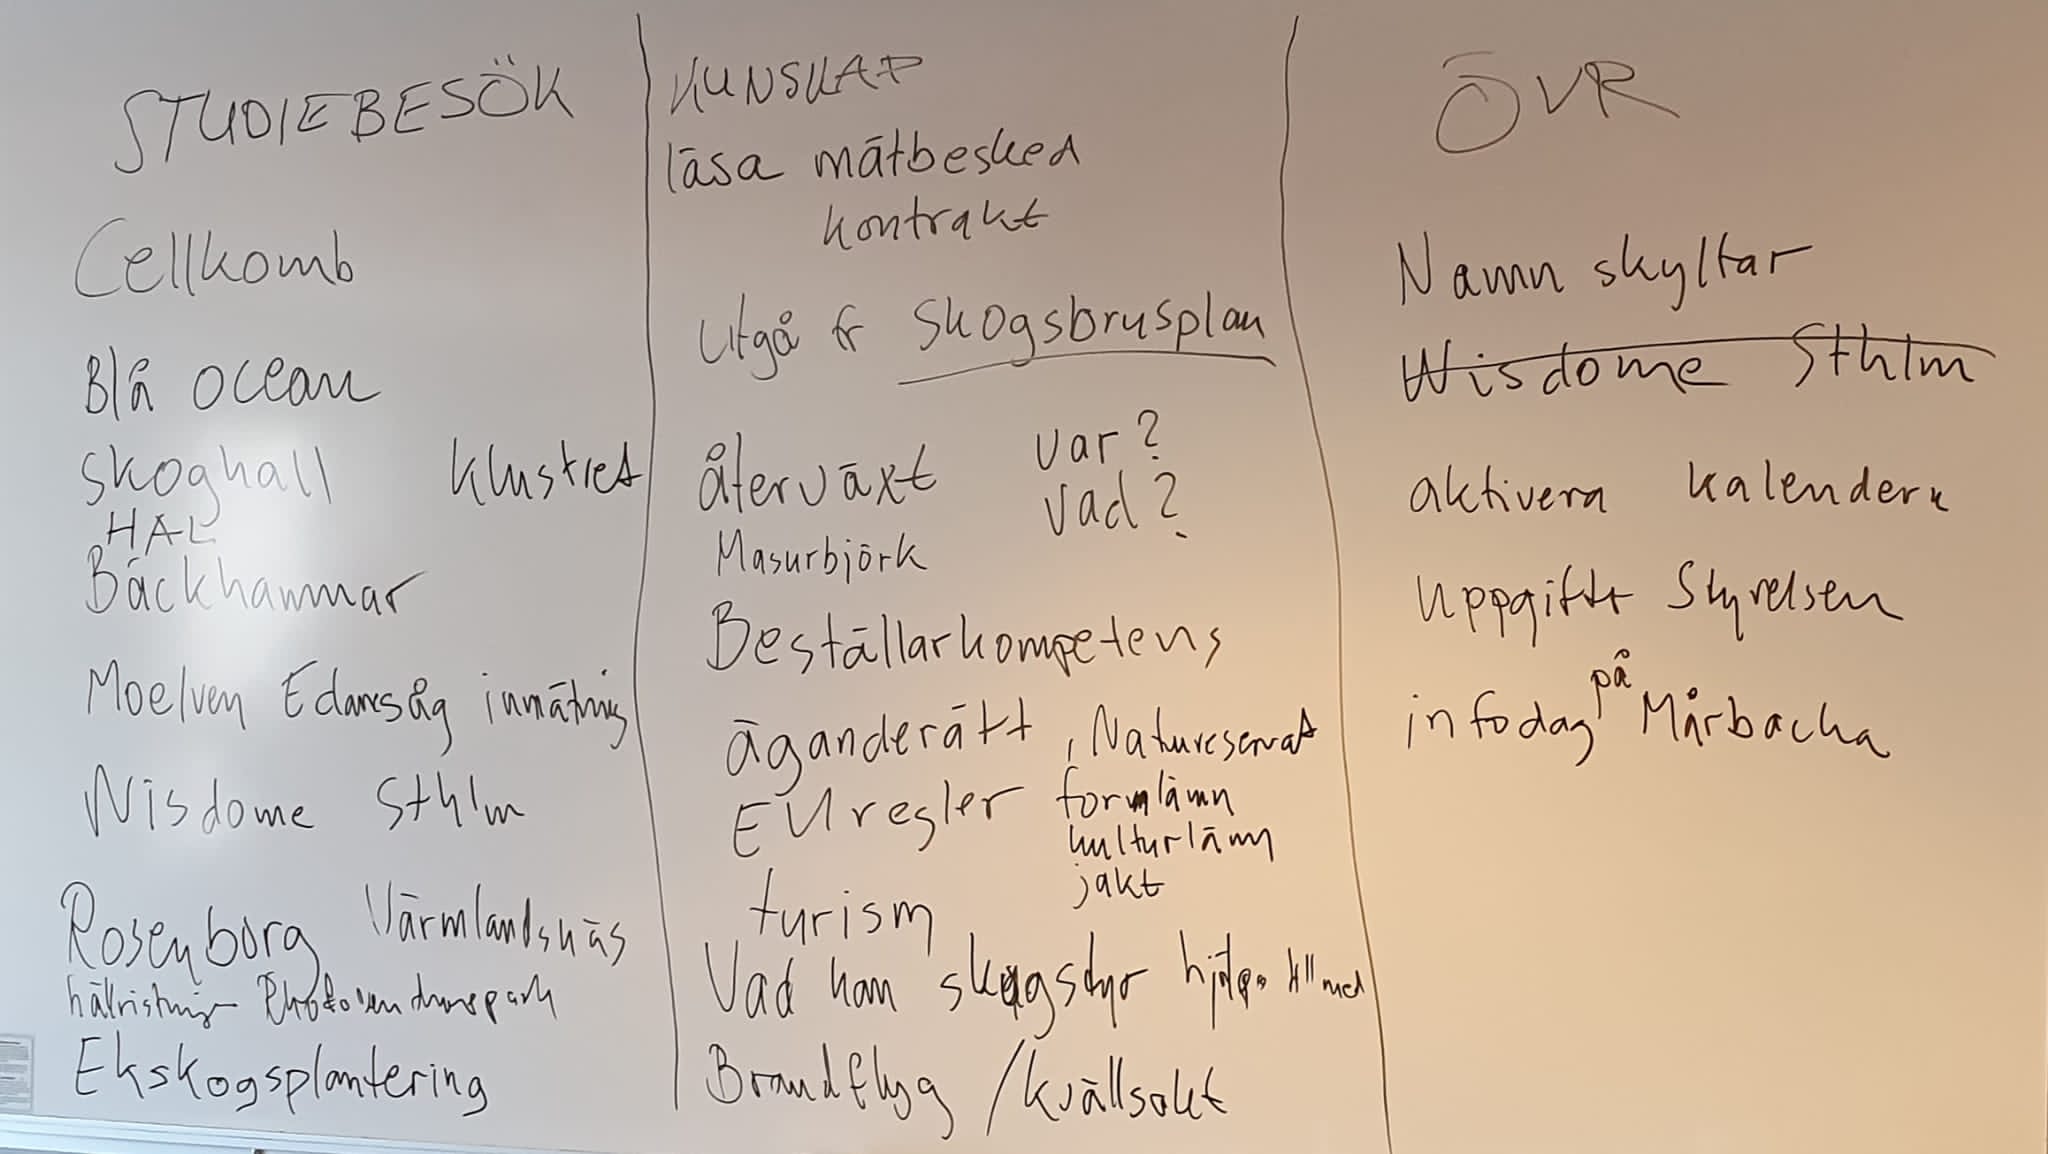 STUDIEBESÖK
Cellkomb
Blå ocean
Skoghall Klustret
HAL
Bäckhammar
Moelven Edanesåg inmätning
Wisdome Sthlm
Rosenborg Värmlandsnäs
hällristning Rhododendronpark
Ekskogsplantering
KUNSKAP
läsa mätbesked
kontrakt
Utgå fr Skogsbrusplan
återväxt var?
vad?
Masurbjörk
Beställarkompetens
äganderätt, Natureservat
EU regler fornlämn
kulturlämn
jakt
turism
Vad kan skogstyr hjälpa till med
Brandflyg /kvällsakt
ÖVR
Namn skyltar
Wisdome Sthlm
aktivera kalendern
Uppgifter Styrelsen
infodag på Mårbacka